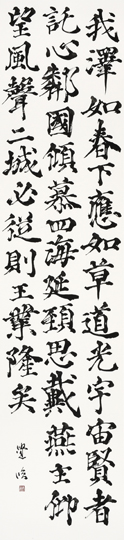 我澤如春下應如草道光宇宙賢者
託心鄰國傾慕四海延頸思戴燕主仰
望風聲二城必從則王業隆矣